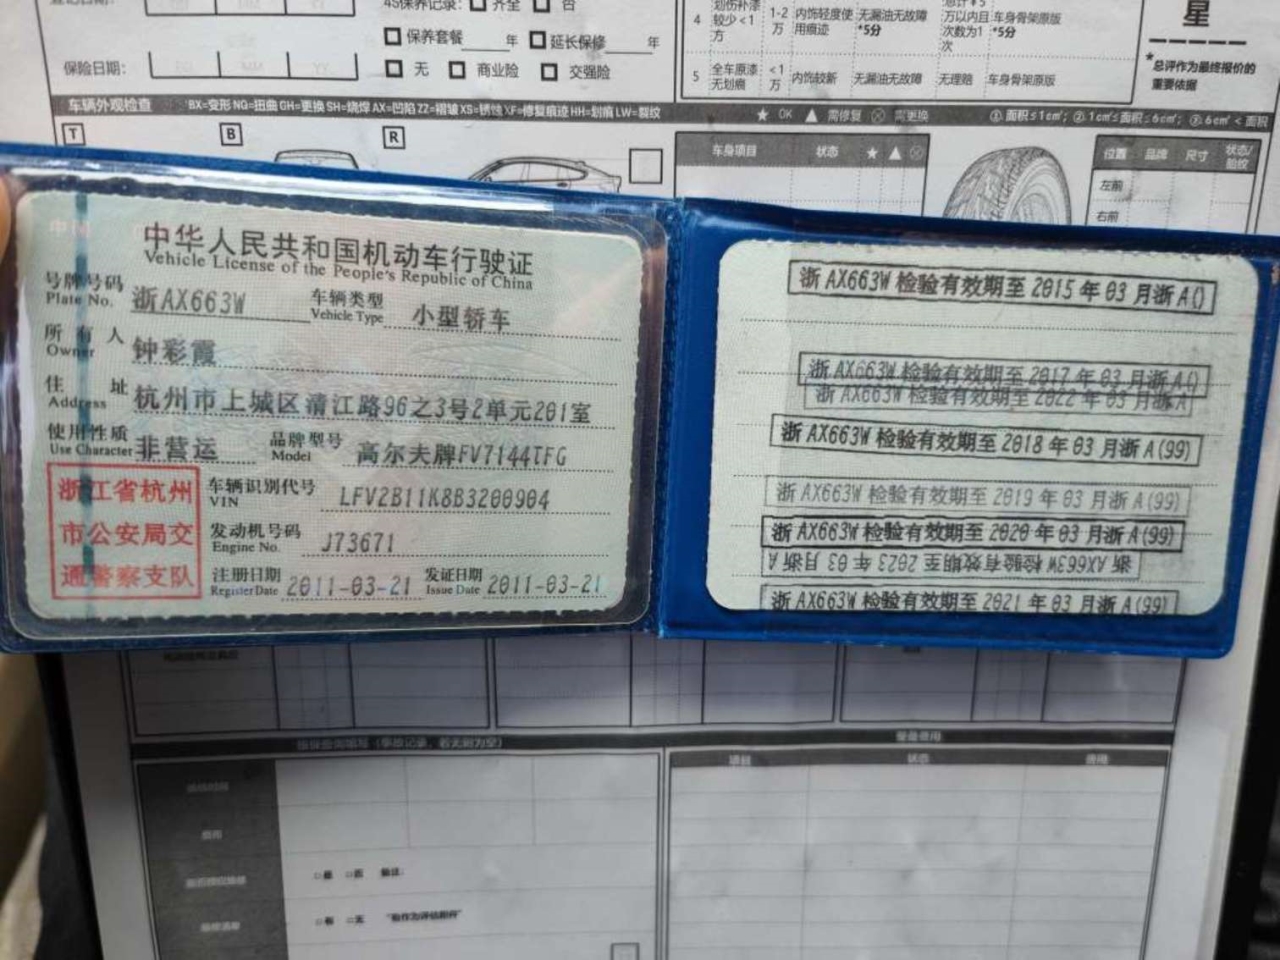 4S保养记录: 齐全 否
保养套餐 年 延长保修 年
保险日期: 无 商业险 交强险
4 划伤补漆较少<1方 1-2万 内饰轻度使用痕迹 无漏油无故障*5分 万以内且次数为1次 车身骨架原版*5分
5 全车原漆无划痕 <1万 内饰较新 无漏油无故障 无理赔 车身骨架原版
星
*总评作为最终报价的重要依据
车辆外观检查 BX=变形 NQ=扭曲 GH=更换 SH=烧焊 AX=凹陷 ZZ=褶皱 XS=锈蚀 XF=修复痕迹 HH=划痕 LW=裂纹 ★ OK ▲ 需修复 ⊗ 需更换 ①面积≤1cm²; ②1cm²≤面积≤6cm²; ③6cm²<面积
T B R
车身项目 状态 ★ ▲ ⊗
位置 品牌 尺寸 状态/胎纹
左前
右前
中华人民共和国机动车行驶证
Vehicle License of the People's Republic of China
号牌号码 浙AX663W 车辆类型 小型轿车
Plate No. Vehicle Type
所有人 钟彩霞
Owner
住址 杭州市上城区清江路96之3号2单元201室
Address
使用性质 非营运 品牌型号 高尔夫牌FV7144TFG
Use Character Model
浙江省杭州
市公安局交
通警察支队
车辆识别代号 LFV2B11K8B3200904
VIN
发动机号码 J73671
Engine No.
注册日期 2011-03-21 发证日期 2011-03-21
Register Date Issue Date
浙AX663W检验有效期至2015年03月浙A()
浙AX663W检验有效期至2017年03月浙A()
浙AX663W检验有效期至2022年03月浙A
浙AX663W检验有效期至2018年03月浙A(99)
浙AX663W检验有效期至2019年03月浙A(99)
浙AX663W检验有效期至2020年03月浙A(99)
浙AX663W检验有效期至2023年03月浙A
浙AX663W检验有效期至2021年03月浙A(99)
项目 状态 费用